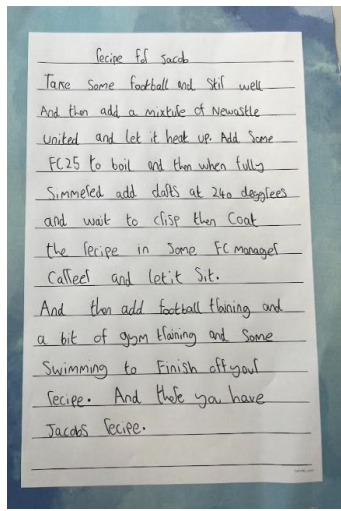 Recipe for Jacob
Take some football and stir well
And then add a mixture of Newastle
united and let it heat up. Add some
FC25 to boil and then when fully
Simmered add darts at 240 deggrees
and wait to crisp then Coat
the recipe in some FC manager
Carreer and let it sit.
And then add football training and
a bit of gym training and some
Swimming to Finish off your
recipe. And there you have
Jacobs recipe.